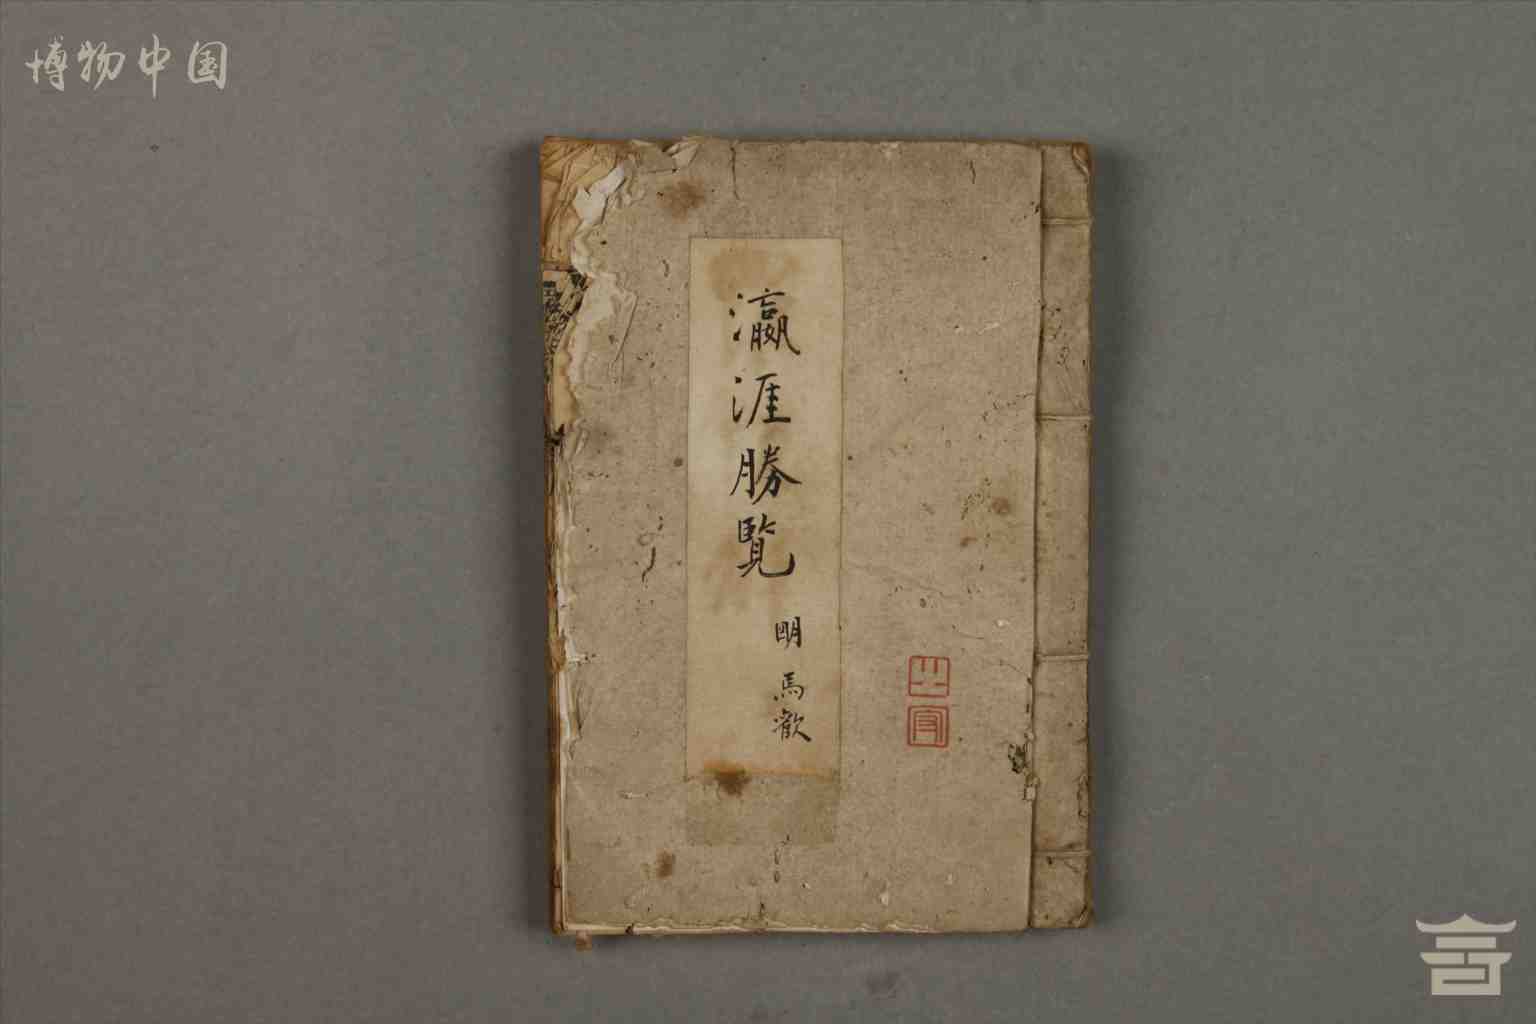 博物中国
瀛涯勝覽
明 馬歡